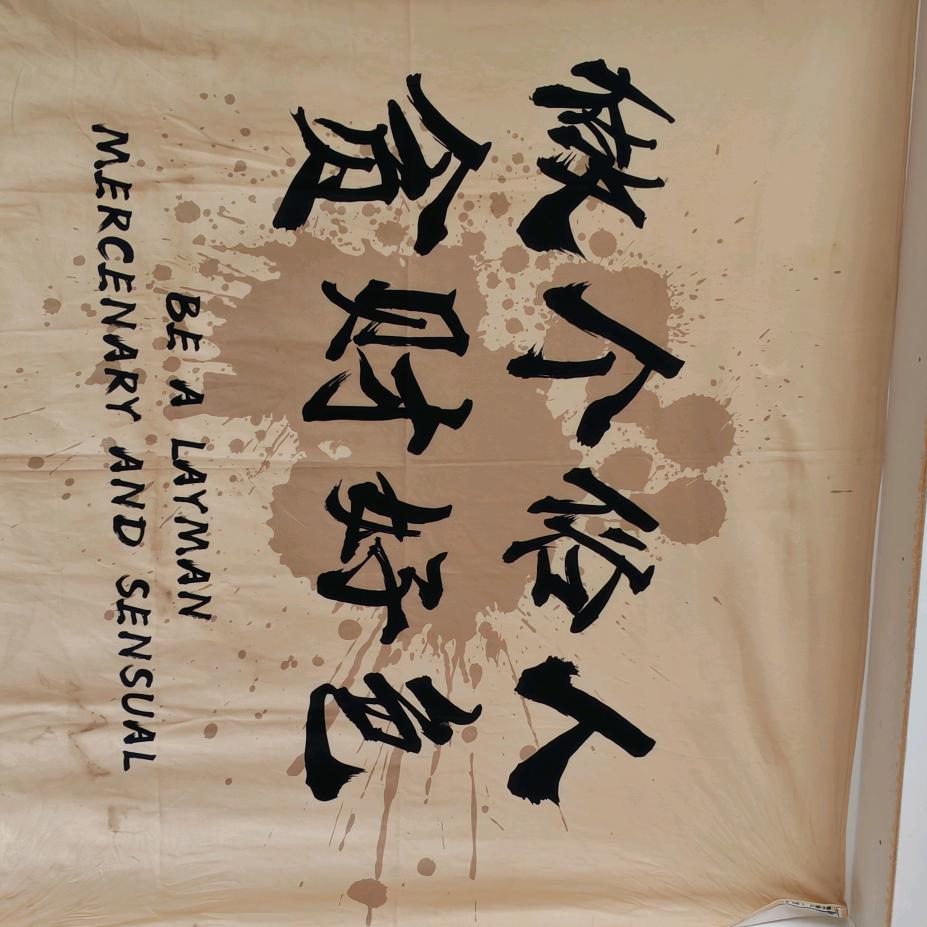 做个俗人
贪财好色
BE A LAYMAN
MERCENARY AND SENSUAL